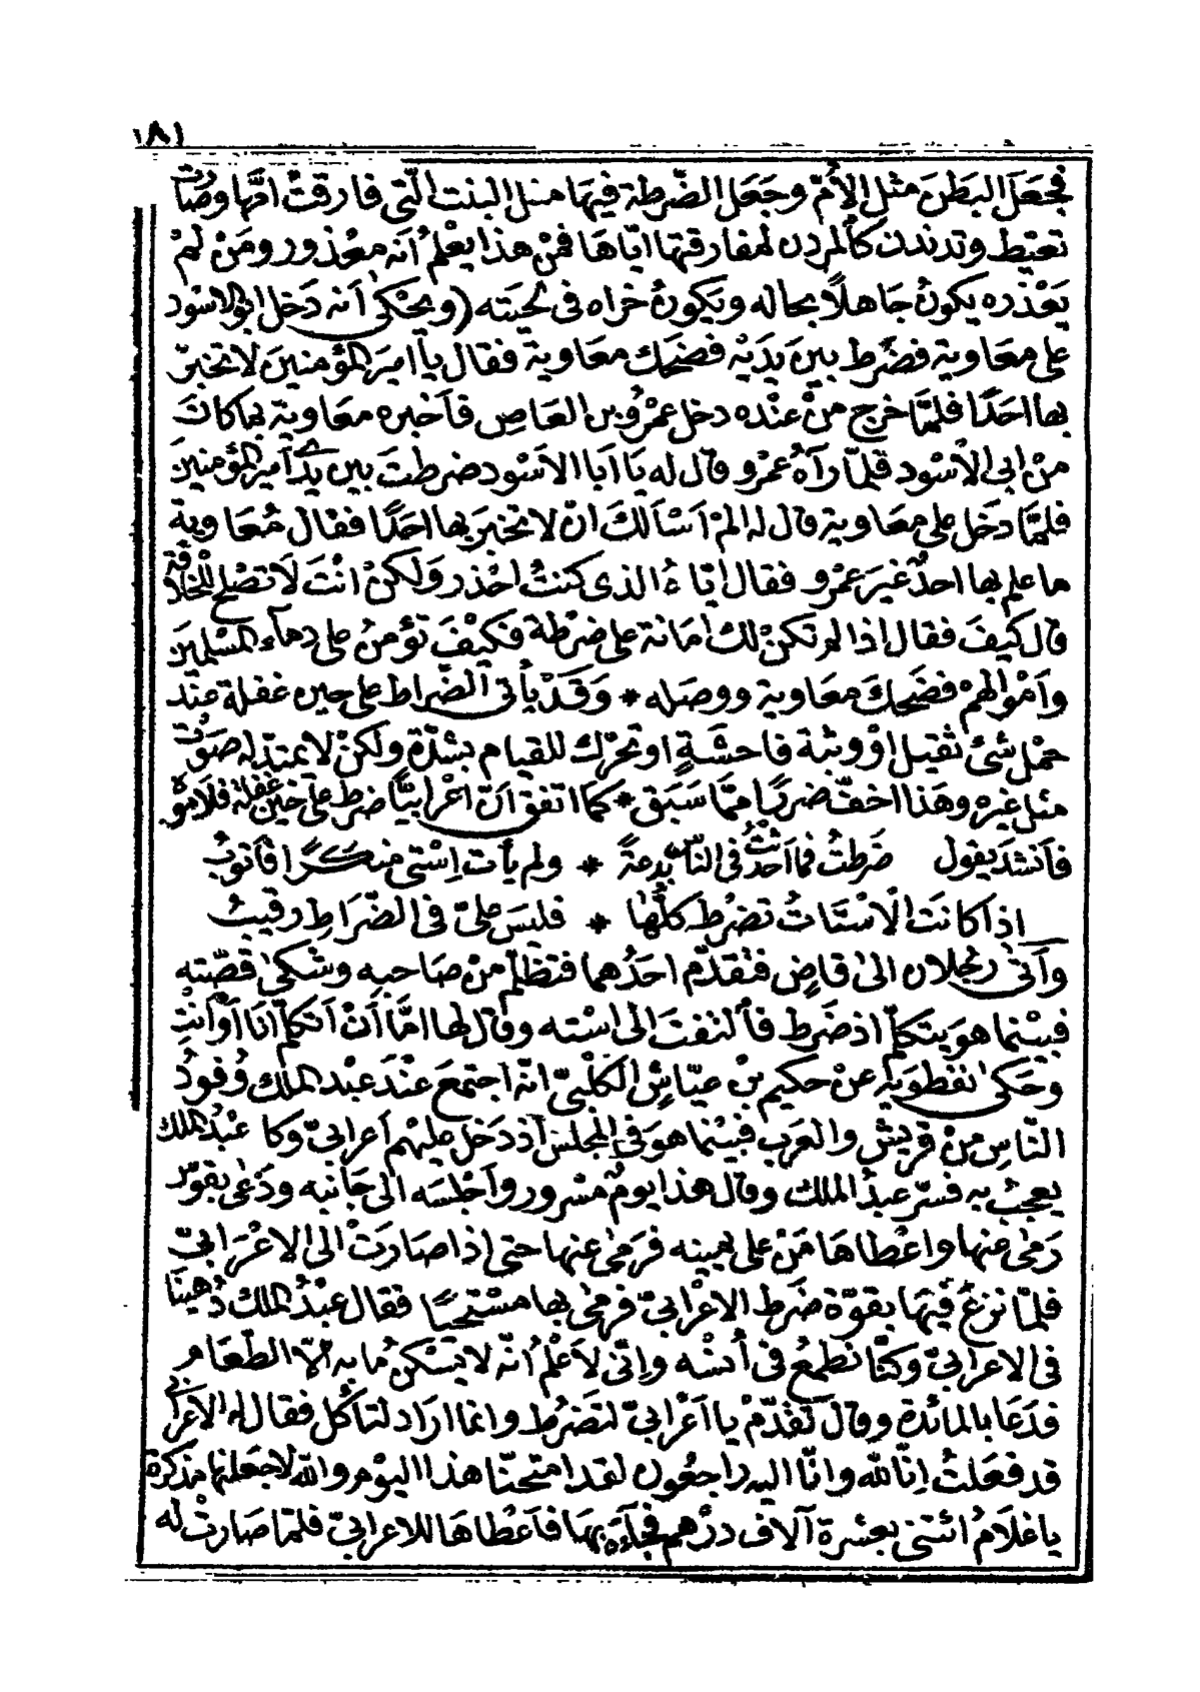 ١٨١
فجعَلَ البَطنَ مثل الأُمّ وجَعَل الضّرطة فيهَا مثل البنت الّتى فارقتْ امّها وصَارت
تعيّط وتدندن كألمردن لمفارقتها ايّاهَا فمَنْ هذا يعْلمُ أنه معْذور ومَنْ لمْ
يَعْذره يكونُ جَاهلًا بحاله ويكونُ خراه فى لحيَته (ويحْكىٰ أنه دَخل ابوالاسْود
على معَاوية فضَرط بينَ يدَيْه فضَحك معَاوية فقال يآ اميرَ المؤمنينَ لا تخبرّ
بها احَدًا فلمّا خرج منْ عنْده دخل عمْرُو بن العَاصِ فأخبره معَاوية بما كانَ
منْ ابى الأسْود فلمّا رآهُ عمْرو قال له يَا أبَا الاَسْود ضرطتَ بين يدَىْ أمير المؤمنينَ
فلمّا دَخل على معَاوية قال له المْ اَسْاَلكَ انْ لا تخبرَ بها احَدًا فقال مُعَاوية
ما علم بها احدٌ غيرَ عمْرو فقال ايّاهُ الذى كنتُ احْذر وَلكنْ انْتَ لَا تصْلح للْخلافة
قال كيفَ فقال اذا لم تكنْ لك اَمَانة على ضرْطة فكيْفَ تؤمنُ على دمآء المسْلمينَ
وأمْوالهمْ فضَحكَ معَاوية ووصَله * وَقَدْ يأتى الضّراط على حين غفلة عنْد
حمْل شئ ثقيل اوْ وثبة فاحشَةٍ او تحرّك للقيام بشدّة ولكنْ لا يمتدّ له صَوْت
مثل غيره وهَذا اخفّ ضررًا ممّا سَبَق * كما اتفق انّ اعْرابيًّا ضرط على حين غفلة فلاموهُ
فأنشدَ يقول ضَرطتُ فما اَحْدثتُ فى النّاس بدعةً * ولم يأت اِسْتى منكرًا فأتوبُ
اذا كانَت الاَسْتَاتُ تضرُط كلّها * فليسَ علىّ فى الضّرَاطِ رقيبُ
وأتىٰ رجُلان الىٰ قاضٍ فتقدّم احَدُهما فتظلّم منْ صَاحبه وشكىٰ قصّته
فبيْنما هوَ يتكلّم اذ ضَرط فألتفتَ الى اسْته وقال لها امَّا أنْ اتكلّم أنَا أوْ أنْتِ
وحَكىٰ نفطوَيه عنْ حكيم بنْ عيّاشٍ الكَلْبىّ انّه اجتمعَ عنْدَ عبْد الملك وُفودُ
النّاسِ منْ قريش والعَرب فبيْنما هوَ فى المجلس اذ دَخل عليْهم أعرابىّ وكا عَبْدُ الملك
يعجبُ به فسرّ عبدُ الملك وقال هذا يومُ مسْرور وأجْلسَه الى جَانبه ودَعٰى بقوْس
رَمىٰ عنها واعْطاهَا مَنْ على يمينه فرَمىٰ عنها حتى اذا صَارَتْ الى الاعْرَابىّ
فلمّا نزعَ فيهَا بقوّة ضَرط الاعْرابىّ فرمىٰ بها مسْتحييًا فقال عبْدُ الملك دُهينَا
فى الاعرابىّ وكنّا نطمعُ فى أُنسْه وإنّى لاَعْلمُ أنّه لا يَسْكنُ ما به اِلاّ الطّعَام
فدَعَا بالمائدة وقال تقدّمْ يا اَعْرابىّ لتَضرُط وانما ارَاد لتأكل فقال له الاعرَابىّ
قد فعَلتُ اِنّا للّه وانّا اليه راجعُون لقد امتحنّا هذا اليوْم واللّه لاجعَلنها مذكرة
يا غلَامُ ائتنى بعشرة آلاف درْهم فجاءَه بهَا فأعْطاهَا للاعرابىّ فلمّا صَارتْ له